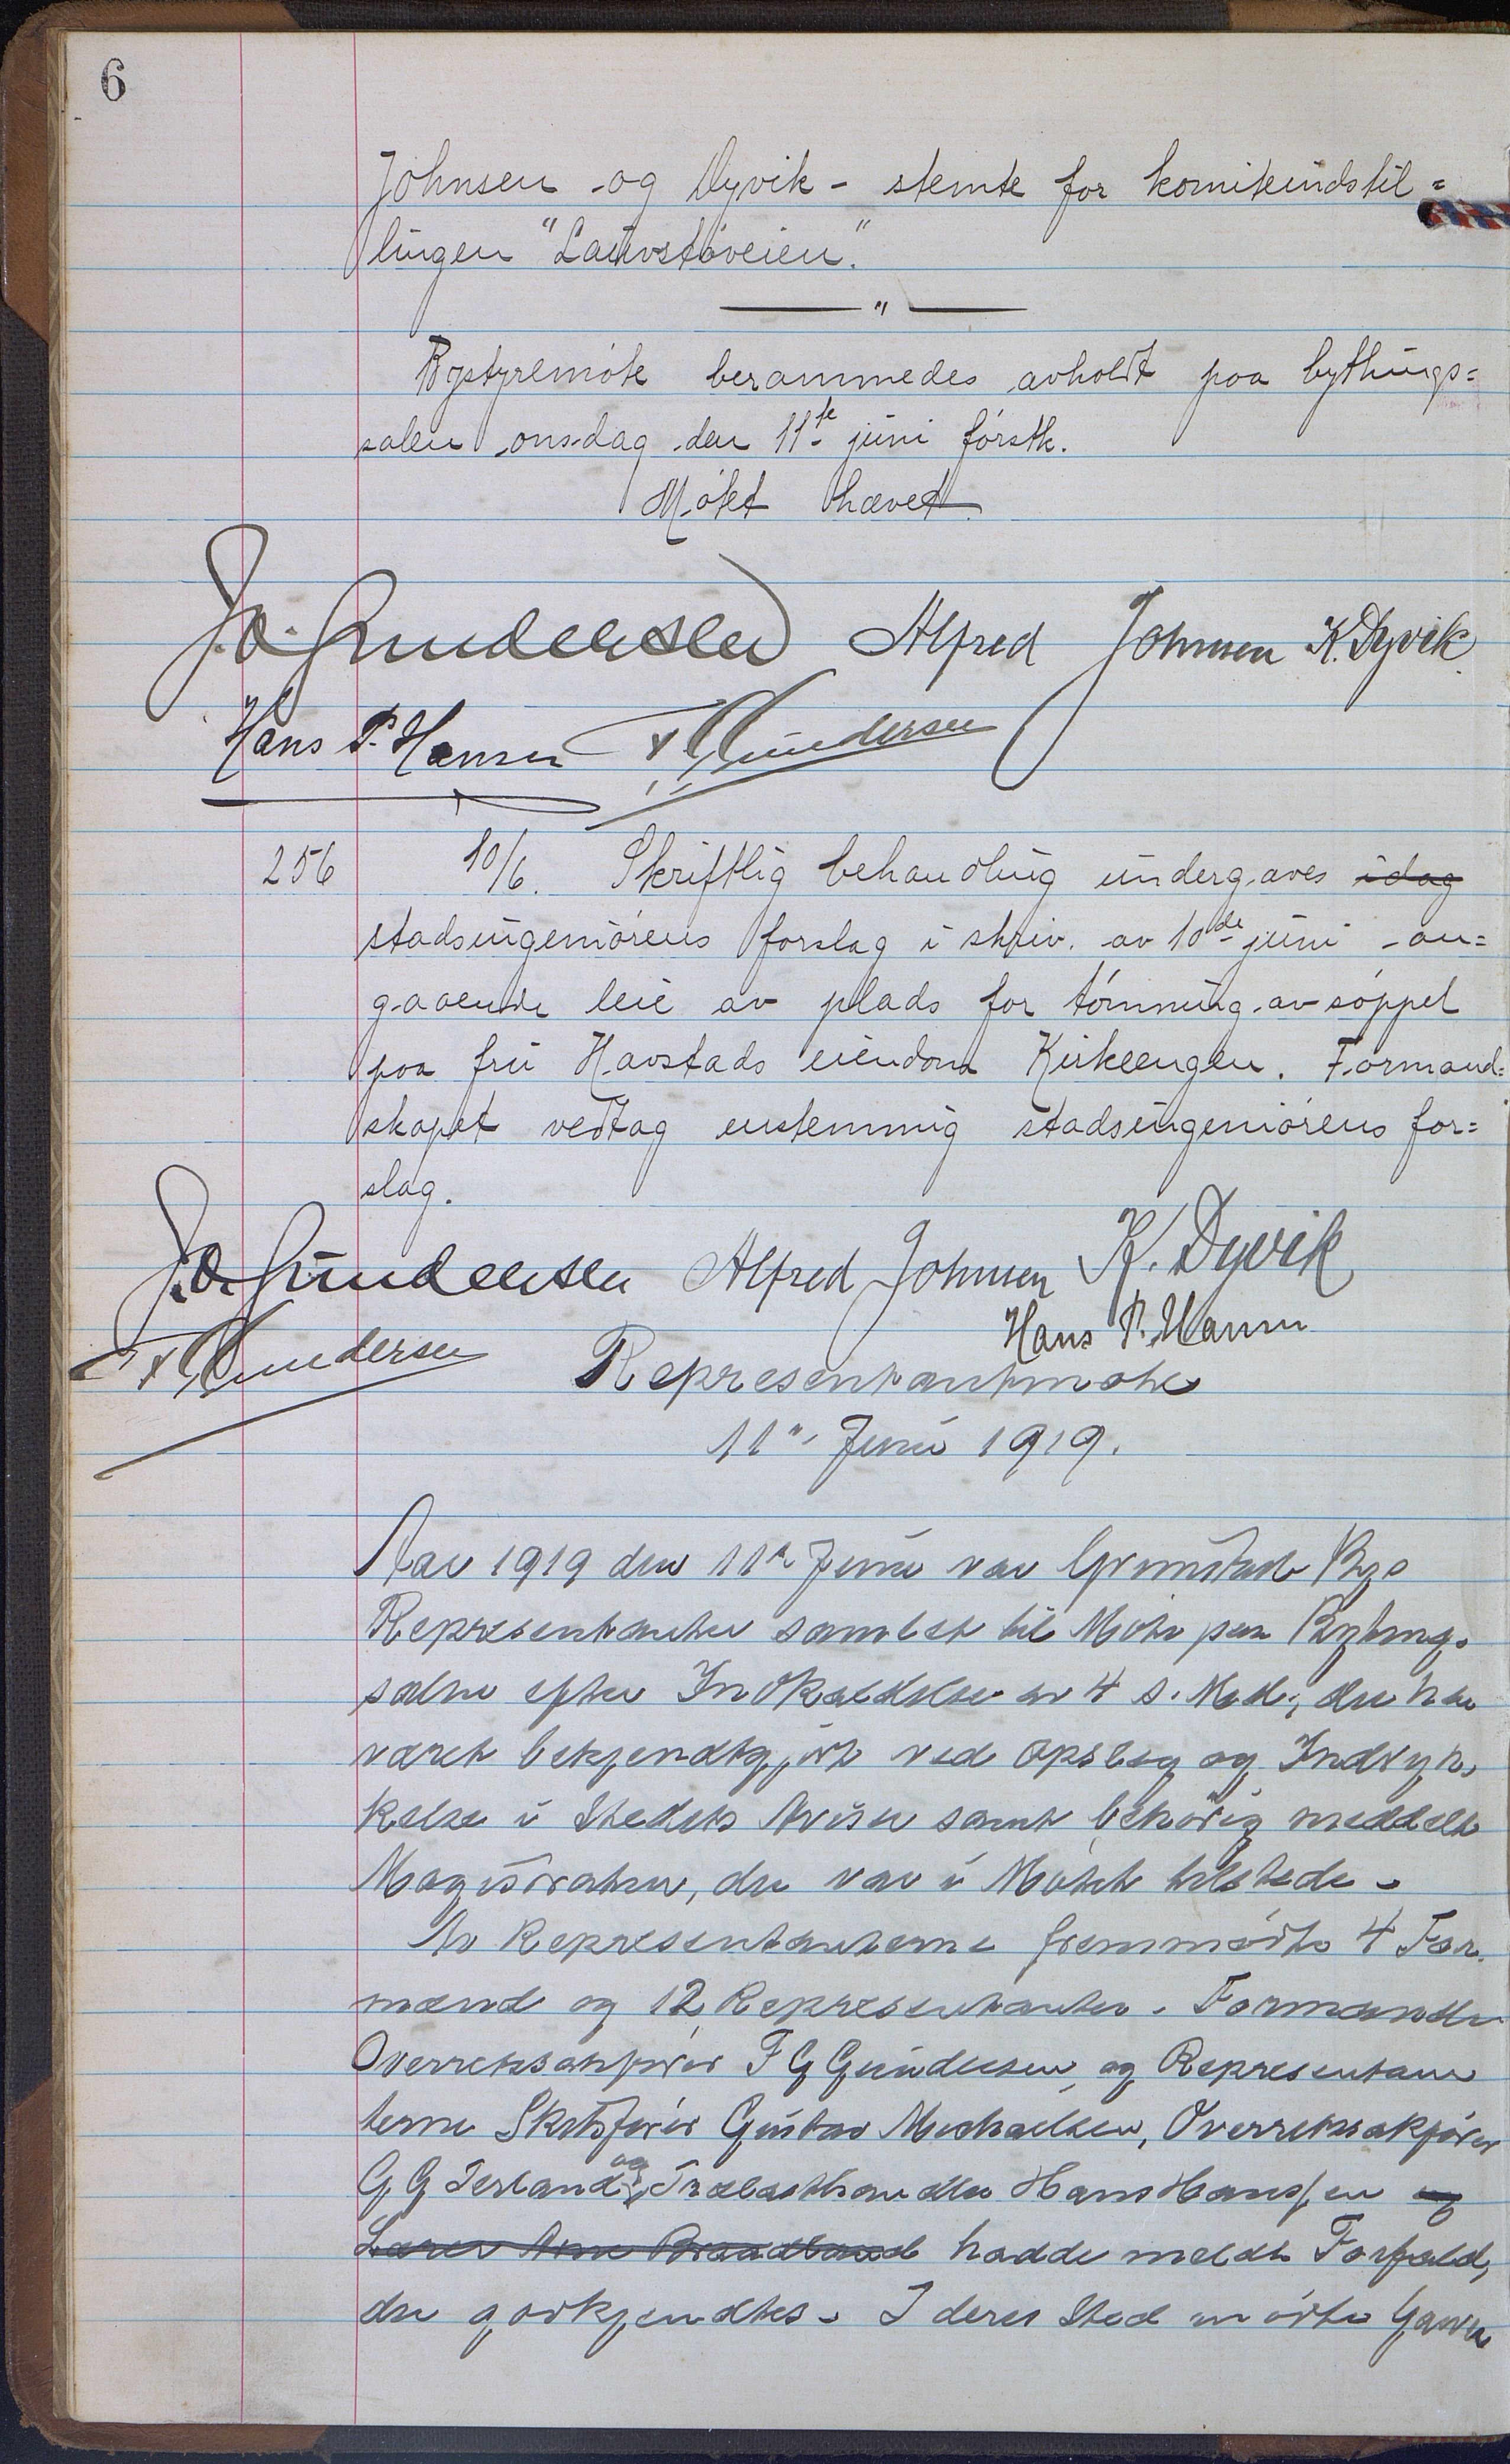 6
Johnsen og Dyvik - stemte for komiteindstil=
lingen "Lauvstøveien".
— " —
Bystyremöte berammedes avholdt paa bythings=
salen onsdag den 11te juni förstk.
Mötet hævet
J.O. Gundersen Alfred Johnsen K. Dyvik
Hans P. Hansen F G Gundersen
256 10/6. Skriftlig behandling undergaves idag
stadsingeniörens forslag i skriv. av 10de juni an=
gaaende leie av plads for tömning av söppel
paa fru Havstads eiendom Kirkeengen. Formand=
skapet vedtag enstemmig stadsingeniörens for=
slag.
J.O. Gundersen Alfred Johnsen K. Dyvik
Hans P. Hansen
F G Gundersen
Representantmøte
11te Juni 1919.
Aar 1919 den 11te Juni var Grimstads Bys
Representanter samlet til Möte paa Bytings
salen efter Indkaldelse av 4 s. Md., der har
været bekjendtgjört ved Opslag og Indryk-
kelse i Stedets Aviser samt behörig meddelt
Magistraten, der var i Mötet tilstede -
Av Representanterne fremmödte 4 For-
mænd og 12 Representanter. Formanden
Overretssakförer F G Gundersen og Representan
terne Skibsförer Gustav Michaelsen, Overretssakförer
G G Jerland og Trælasthandler Hans Hanssen og
Lærer Arne Brandland hadde meldt Forfald,
der godkjendtes. I deres Sted mödte